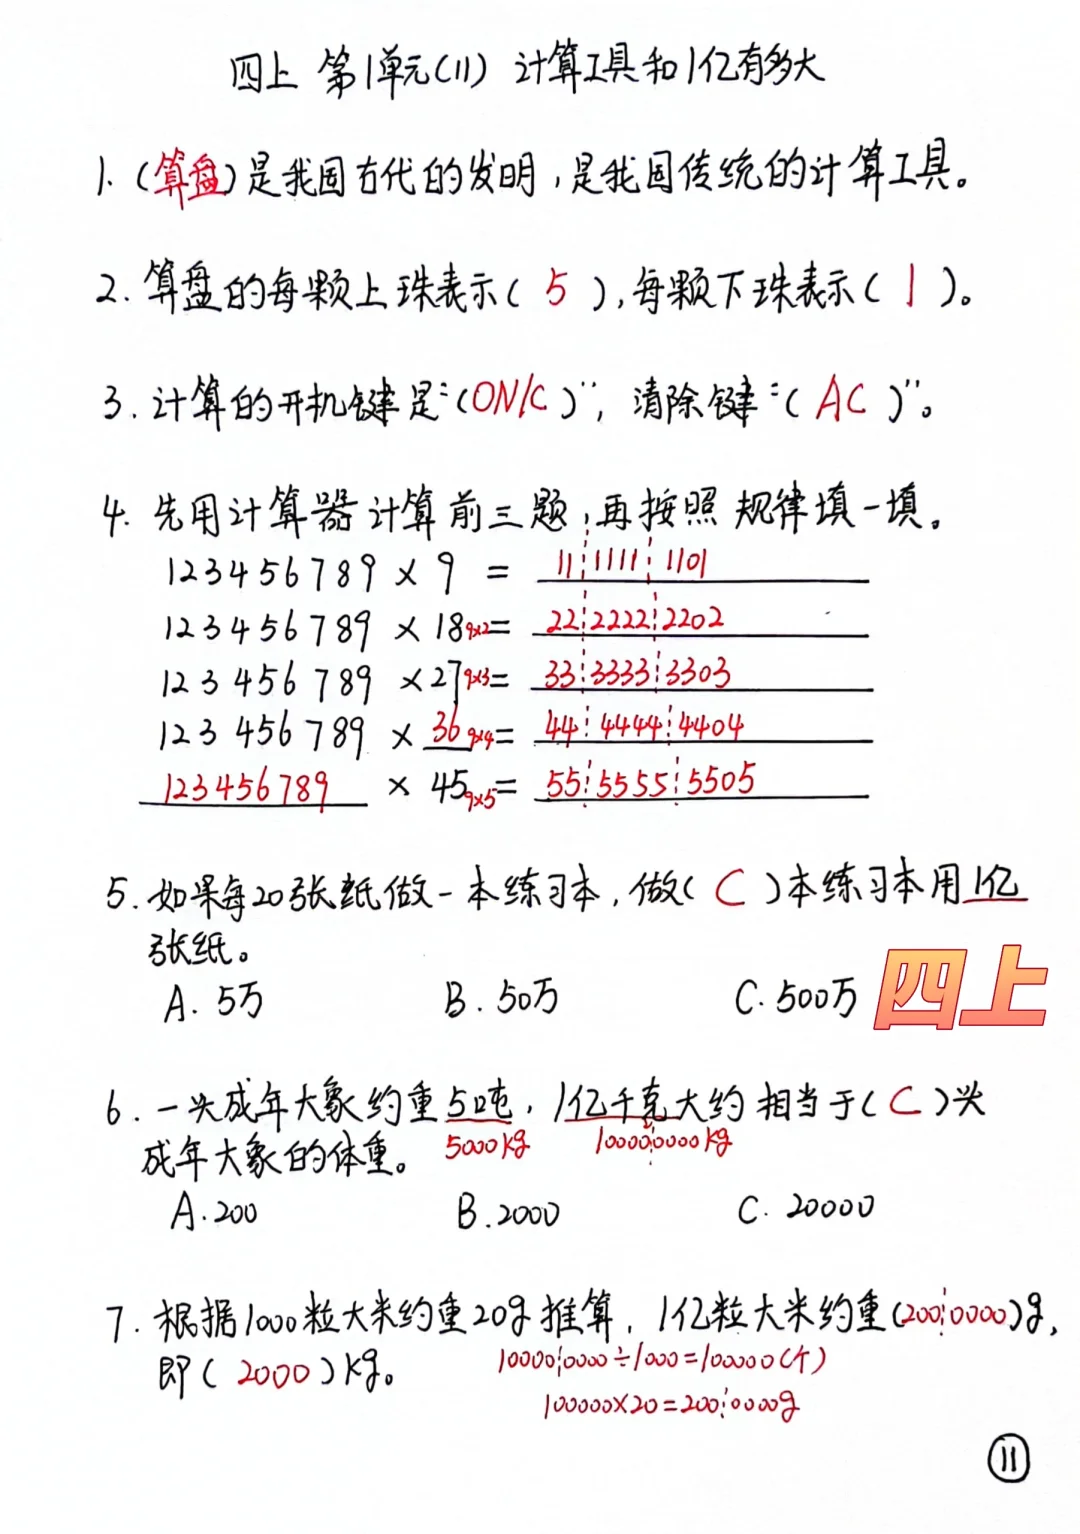 四上 第1单元(11) 计算工具和1亿有多大
1. (算盘)是我国古代的发明,是我国传统的计算工具。
2. 算盘的每颗上珠表示( 5 ),每颗下珠表示( 1 )。
3. 计算的开机键是“(ON/C)”,清除键“(AC)”。
4. 先用计算器计算前三题,再按照规律填一填。
123456789 × 9 = 11¦1111¦1101
123456789 × 18 9×2 = 22¦2222¦2202
123456789 × 27 9×3 = 33¦3333¦3303
123456789 × 36 9×4 = 44¦4444¦4404
123456789 × 45 9×5 = 55¦5555¦5505
5. 如果每20张纸做一本练习本,做( C )本练习本用1亿
张纸。
A. 5万 B. 50万 C. 500万
四上
6. 一头成年大象约重5吨,1亿千克大约相当于( C )头
5000kg 10000¦0000kg
成年大象的体重。
A. 200 B. 2000 C. 20000
7. 根据1000粒大米约重20g推算,1亿粒大米约重(200¦0000)g,
10000¦0000÷1000=100000(个)
即( 2000 )kg。
100000×20=200¦0000g
11